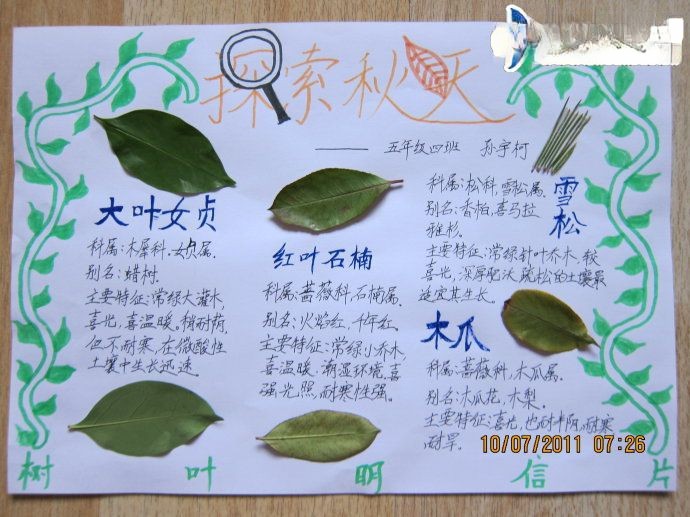 探索秋天
——五年级四班 孙宇柯
大叶女贞
科属:木犀科.女贞属.
别名:蜡树.
主要特征:常绿大灌木,
喜光,喜温暖。稍耐荫,
但不耐寒,在微酸性
土壤中生长迅速。
红叶石楠
科属:蔷薇科,石楠属.
别名:火焰红,千年红.
主要特征:常绿小乔木,
喜温暖、潮湿环境,喜
强光照,耐寒性强。
雪松
科属:松科,雪松属.
别名:香柏,喜马拉
雅杉.
主要特征:常绿针叶乔木,较
喜光,深厚肥沃疏松的土壤最
适宜其生长。
木瓜
科属:蔷薇科,木瓜属.
别名:木瓜花,木梨.
主要特征:喜光,也耐半阴,耐寒
耐旱.
10/07/2011 07:26
树叶明信片